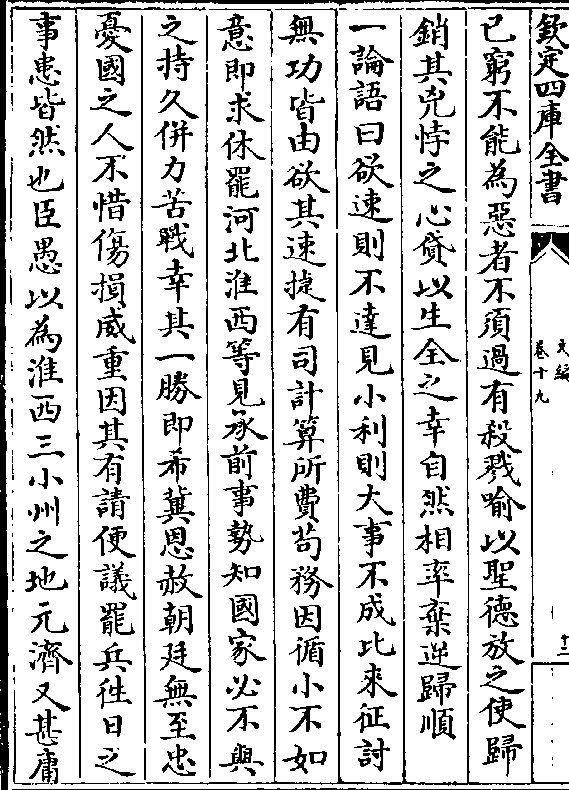 欽定四庫全書
文編
卷十九
已窮不能為惡者不須過有殺戮喻以聖德放之使歸
銷其兇悖之心貸以生全之幸自然相率棄逆歸順
一論語曰欲速則不達見小利則大事不成比來征討
無功皆由欲其速捷有司計算所費茍務因循小不如
意即求休罷河北淮西等見承前事勢知國家必不與
之持久併力苦戰幸其一勝即希冀恩赦朝廷無至忠
憂國之人不惜傷損威重因其有請便議罷兵徃日之
事患皆然也臣愚以為淮西三小州之地元濟又甚庸